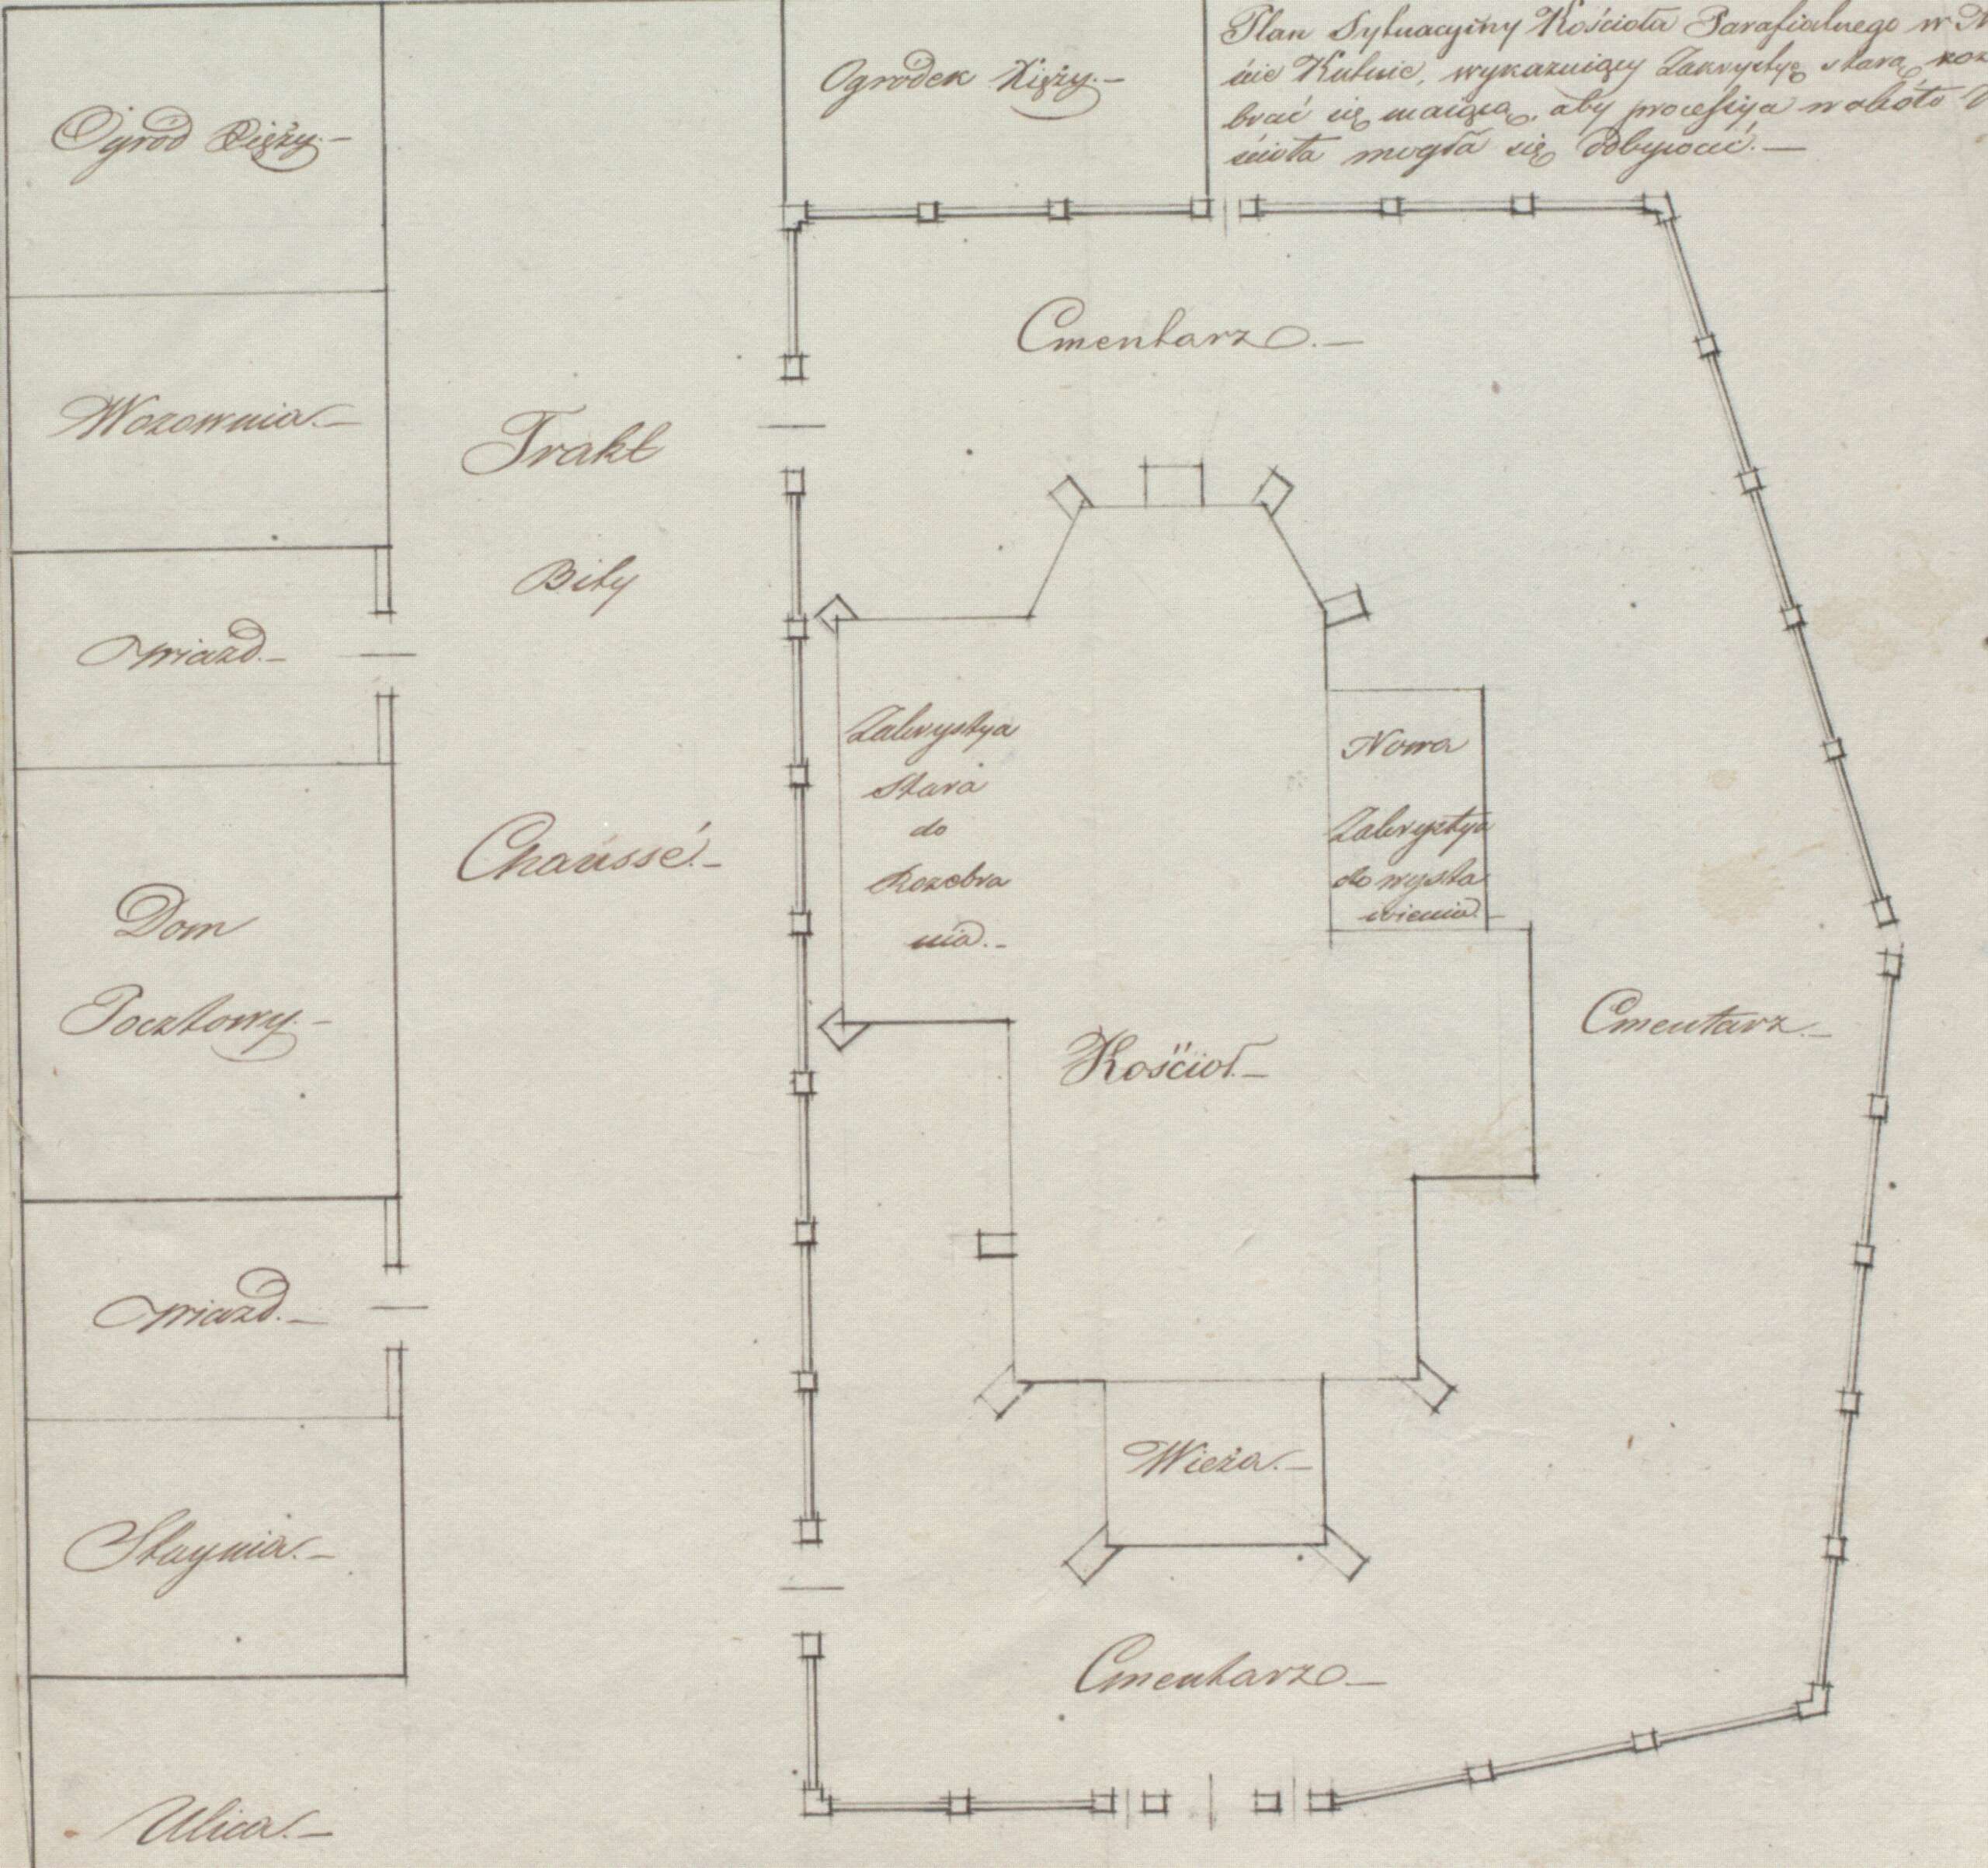 Plan Sytuacyiny Kościoła Parafialnego w
ście Kutnie, wykazuiący Zakrystyę starą, roz
brać się maiącą, aby processya w około
ścioła mogła się odbywać.—
Ogródek Xięży.—
Ogród Xięży.—
Wozownia.—
Wiazd.—
Dom
Pocztowy.—
Wiazd.—
Staynia.—
Ulica.—
Trakt
Bity
Chaussé.—
Cmentarz.—
Zakrystya
Stara
do
Rozebra
nia.—
Nowa
Zakrystya
do wysta
wienia.—
Kościoł.—
Cmentarz.—
Wieża.—
Cmentarz—